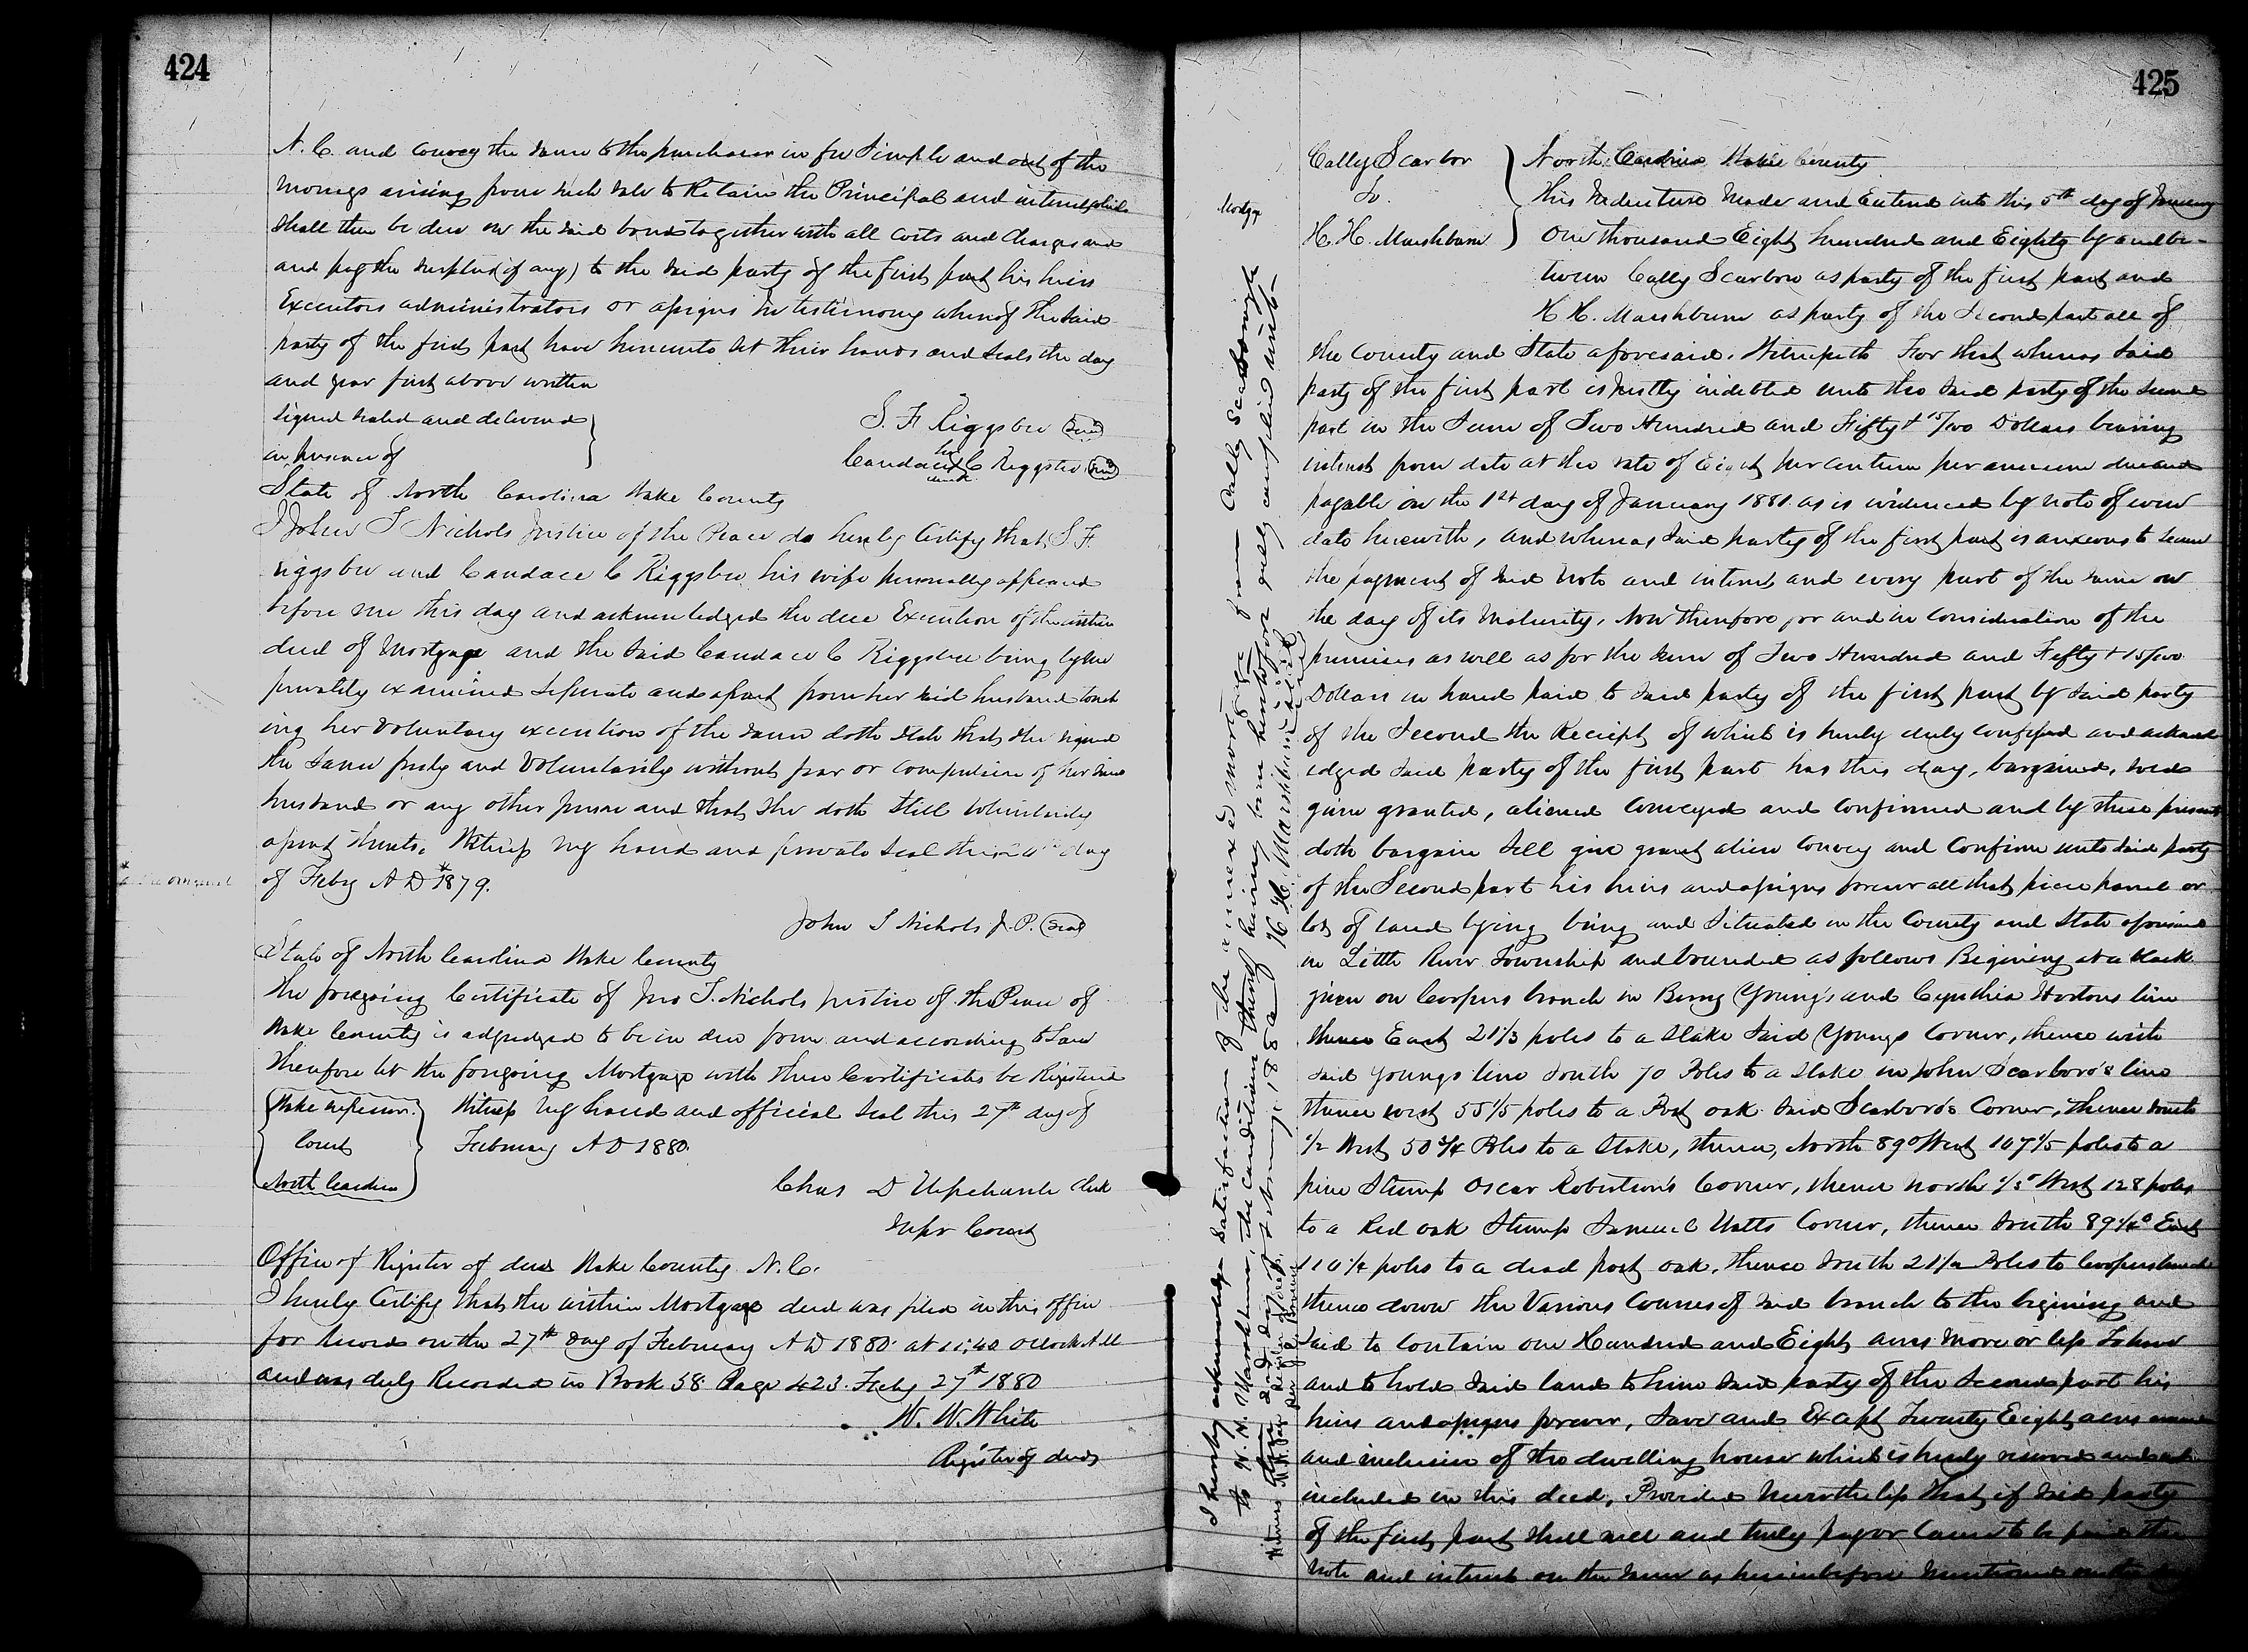 424
N. C. and convey the same to the purchaser in fee Simple and out of the
moneys arising from such sale to Retain the Principal and interest which
shall then be due on the said bond together with all costs and Charges and
and pay the surplus (if any) to the said party of the first part his heirs
Executors administrators or assigns In testimony whereof the said
party of the first part have hereunto set their hands and seals the day
and year first above written
signed sealed and delivered
in presence of
S. F. Riggsbee (Seal)
her
Candace C Riggsbee (Seal)
mark
State of North Carolina Wake County
I John S Nichols Justice of the Peace do hereby Certify that S. F.
Riggsbee and Candace C Riggsbee his wife personally appeared
before me this day and acknowledged the due Execution of the within
deed of Mortgage and the said Candace C Riggsbee being by me
privately examined separate and apart from her said husband touch
ing her voluntary execution of the same doth state that she signed
the same freely and Voluntarily without fear or compulsion of her said
husband or any other person and that she doth still voluntarily
assent thereto. Witness my hand and private seal this day
of Feby A D 1879.
John S Nichols J. P. (Seal)
State of North Carolina Wake County
The foregoing Certificate of Jno S. Nichols justice of the Peace of
Wake County is adjudged to be in due form and according to Law
Therefore let the foregoing Mortgage with these Certificates be Registered
Wake Superior Witness my hand and official seal this 27th day of
Court February A D 1880.
North Carolina
Chas D Upchurch Clerk
Supr Court
Office of Register of deeds Wake County N. C.
I hereby Certify that the within Mortgage deed was filed in this office
for Record on the 27th day of February A D 1880 at 11;40 oclock A M
and was duly Recorded in Book 58 Page 423. Feby 27th 1880
W. W. White
Register of deeds
425
Mortgage
Cally Scarbor North Carolina Wake County
To This Indenture Made and Entered into this 5th day of January
H. H. Marshburn One thousand Eight hundred and Eighty by and be-
tween Cally Scarboro as party of the first part and
H. H. Marshburn as party of the Second part all of
the County and State aforesaid. Witnesseth For that whereas said
party of the first part is justly indebted unto the said party of the second
part in the Sum of Two Hundred and Fifty + 15/100 Dollars bearing
interest from date at the rate of Eight per centum per annum due and
payable on the 1st day of January 1881. as is evidenced by note of even
date herewith, and whereas said party of the first part is anxious to secure
the payment of said note and interest and every part of the same on
the day of its maturity, Now therefore for and in consideration of the
premises as well as for the sum of Two Hundred and Fifty + 15/100
Dollars in hand paid to said party of the first part by said party
of the Second the Receipt of which is hereby duly confessed and acknowl
edged said party of the first part has this day, bargained, sold
given granted, aliened conveyed and confirmed and by these presents
doth bargain sell give grant alien convey and confirm unto said party
of the Second part his heirs and assigns forever all that piece parcel or
lot of land lying being and situated in the County and State aforesaid
in Little River Township and bounded as follows Begining at a black
given on Coopers branch in Berry Young's and Cynthia Hortons line
thence East 21 1/3 poles to a stake said Youngs Corner, thence with
said Youngs line South 70 Poles to a stake in John Scarboro's line
thence west 55 1/5 poles to a Post oak said Scarboro's Corner, thence South
1/2 West 50 3/4 Poles to a Stake, thence, North 89° West 107 1/5 poles to a
pine Stump Oscar Robertson's Corner, thence north 1/3° West 128 poles
to a Red oak Stump Samuel Watts Corner, thence South 89 1/4° East
110 1/4 poles to a dead post oak, thence South 21 1/2 Poles to Coopers branch
thence down the Various Courses of said branch to the begining and
said to contain one Hundred and Eight acres more or less To have
and to hold said land to him said party of the second part his
heirs and assigns forever, save and Except Twenty Eight acres around
and inclusive of the dwelling house which is hereby reserved and not
included in this deed, Provided nevertheless that if said party
of the first part shall well and truly pay or cause to be paid the
note and interest on the same as hereinbefore mentioned on the
I hereby acknowledge satisfaction of the annexed mortgage from Cally Scarborough
to H. H. Marshburn, the conditions thereof having been heretofore fully complied with-
Witness day of February, 188 H. H. Marshburn (Seal)